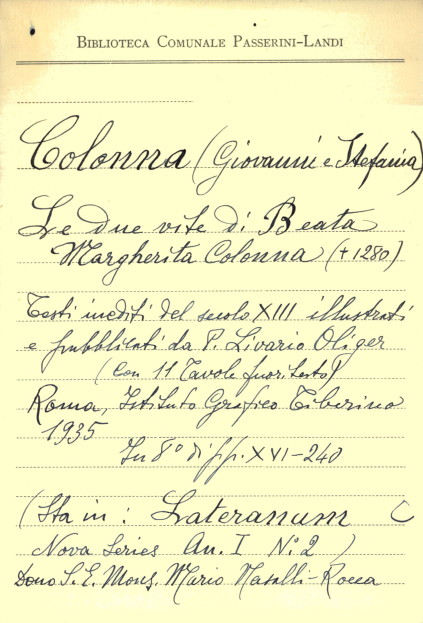 BIBLIOTECA COMUNALE PASSERINI-LANDI
Colonna (Giovanni e Stefania)
Le due vite di Beata
Margherita Colonna (+ 1280)
Testi inediti del secolo XIII illustrati
e pubblicati da P. Livario Oliger
(con 11 Tavole fuori testo)
Roma, Istituto Grafico Tiberino
1935
In 8° di pp. XVI-240
(Sta in: Lateranum C
Nova Series An. I N. 2)
Dono S. E. Mons. Mario Nasalli-Rocca